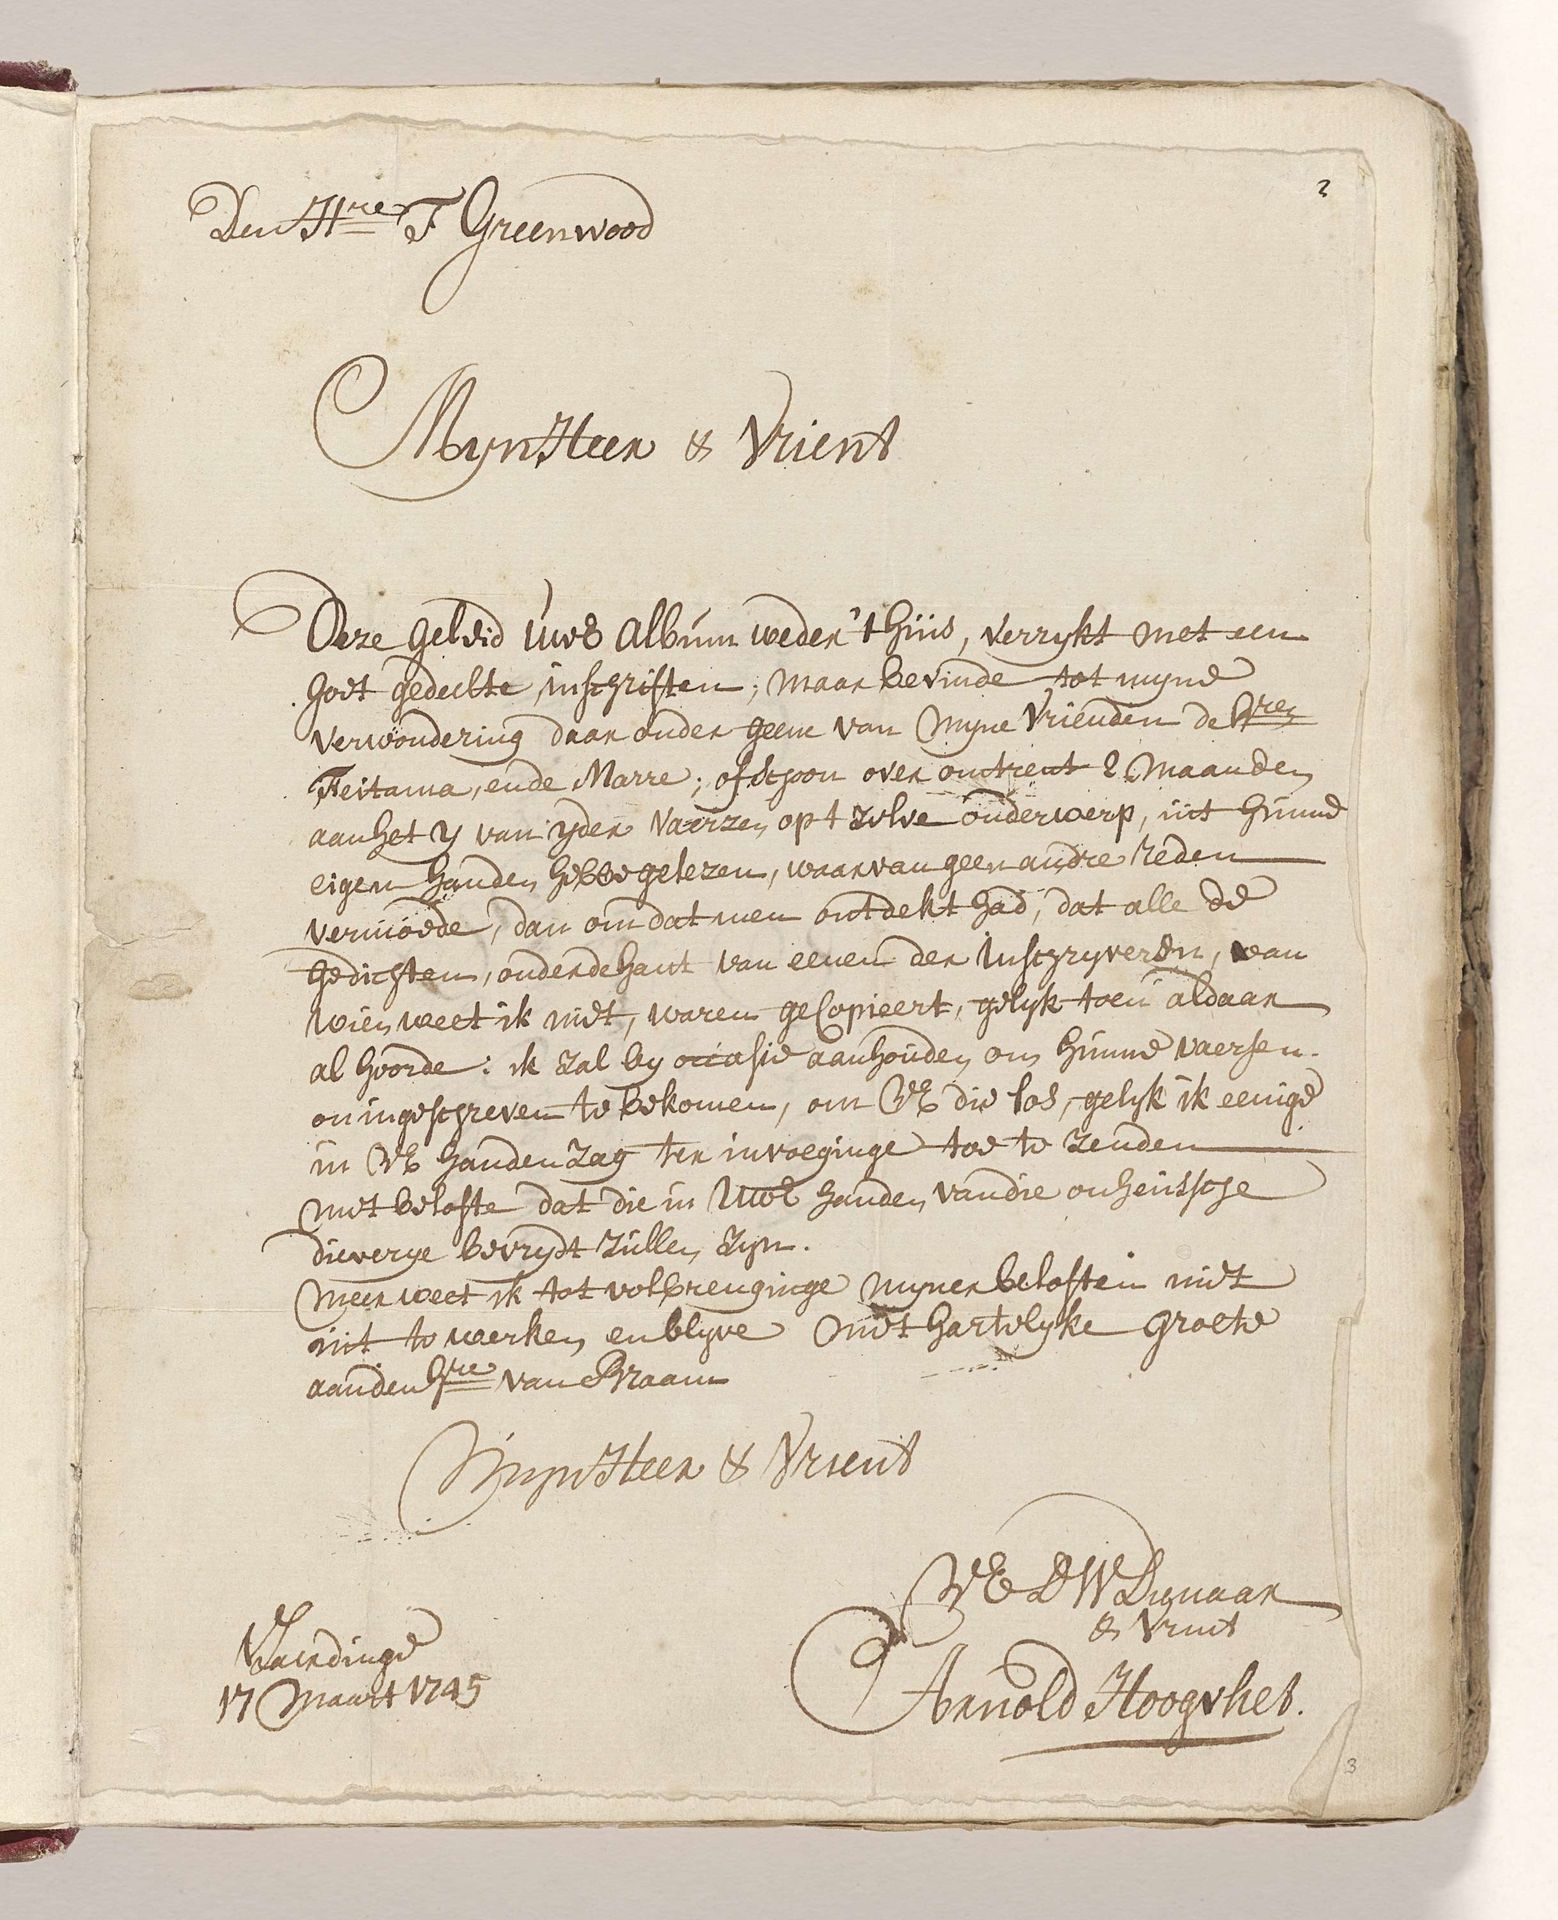 2
Den Hre F Greenwood
Myn Heer & Vrient
Deze geleid Uwe Album weder 't huis, verrykt met een
hoet gedechte inschriften, maar bevinde tot myne
verwondering daar onder geene van myne Vrienden de Hren
Feitama, ende Marre; ofschoon over omtrent 2 maanden
aan het Y van yder Vaerzen op t zelve onderwerp, uit hunne
eigen handen hebbe gelezen, waarvan geen andre reden
vermoede, dan om dat men ontdekt had, dat alle de
gedichten, onder de hant van eenen der Inschryveren, van
wien weet ik niet, waren gecopieert, gelyk toen aldaar
al hoorde: ik zal by occasie aanhouden om hunne vaersen
on ingeschreven te bekomen, om UE die los, gelyk ik eenige
in UE handen zag ter invoeginge toe te zenden
met belofte dat die in Uwe handen van die onheussche
dieverye bevrydt zullen zyn.
Meer weet ik tot volbrenginge myner beloften niet
uit te werken, en blyve met hartelyke groete
aan den Hre van Braam
Myn Heer & Vrient
UE DW Dienaar
& Vrint
Vlaerdinge
17 Maart 1745
Arnold Hoogvliet.
3